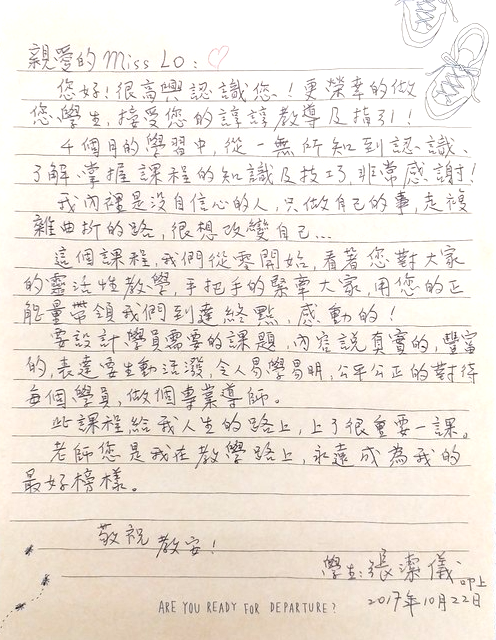 親愛的 Miss Lo：♡
您好！很高興認識您！更榮幸的做
您學生，接受您的諄諄教導及指引！
4個月的學習中，從一無所知到認識、
了解、掌握課程的知識及技巧，非常感謝！
我內裡是沒自信心的人，只做自己的事，走複
雜曲折的路，很想改變自己...
這個課程，我們從零開始，看著您對大家
的靈活性教學，手把手的緊牽大家，用您的正
能量帶領我們到達終點，感動的！
要設計學員需要的課題，內容說真實的，豐富
的，表達要生動活潑，令人易學易明，公平公正的對待
每個學員，做個專業導師。
此課程給我人生的路上，上了很重要一課。
老師您是我在教學路上，永遠成為我的
最好榜樣。
敬祝
教安！
學生：張潔儀 叩上
2017年10月22日
ARE YOU READY FOR DEPARTURE?